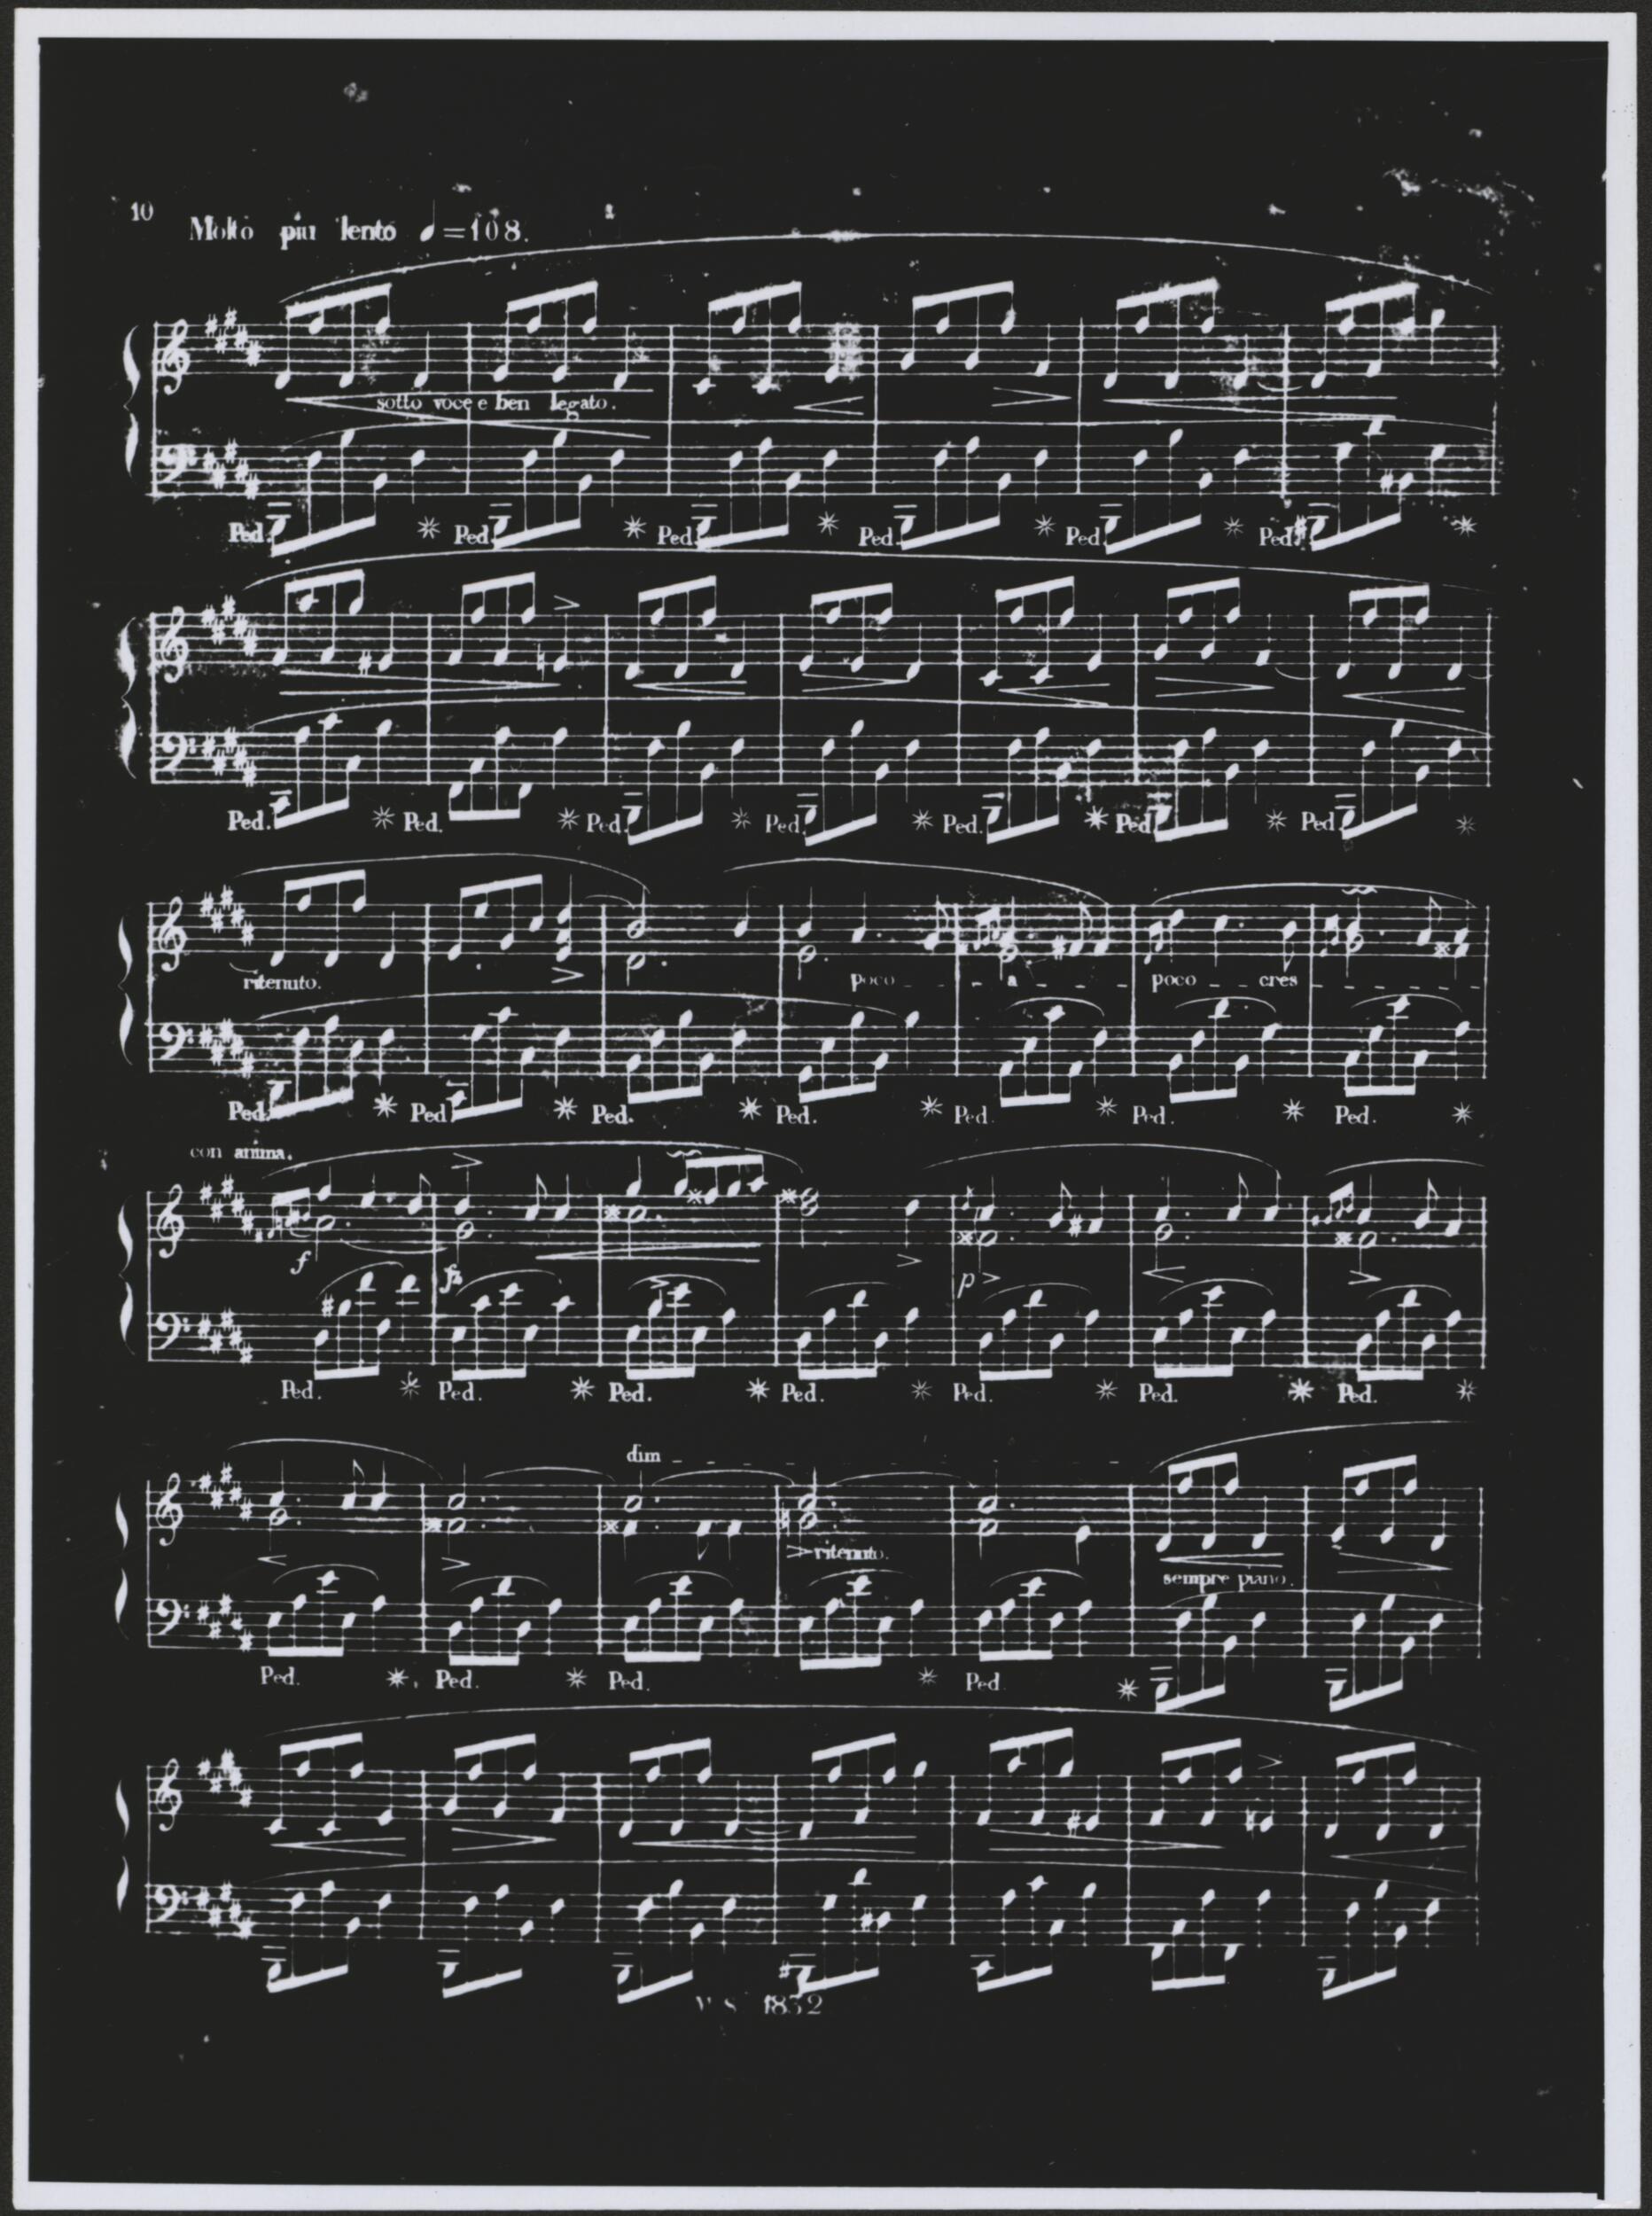 10
Molto piu lento ♩=108.
sotto voce e ben legato.
Ped. * Ped. * Ped. * Ped. * Ped. * Ped. *
Ped. * Ped. * Ped. * Ped. * Ped. * Ped. * Ped. *
ritenuto. poco _ _ a _ _ _ poco _ _ cres _ _ _ _ _
Ped. * Ped. * Ped. * Ped. * Ped. * Ped. * Ped. *
con anima.
f fz p
Ped. * Ped. * Ped. * Ped. * Ped. * Ped. * Ped. *
dim _ _ _ _ _ _ _ _ _ _ _ _
ritenuto.
sempre piano.
Ped. * Ped. * Ped. * Ped. *
1832